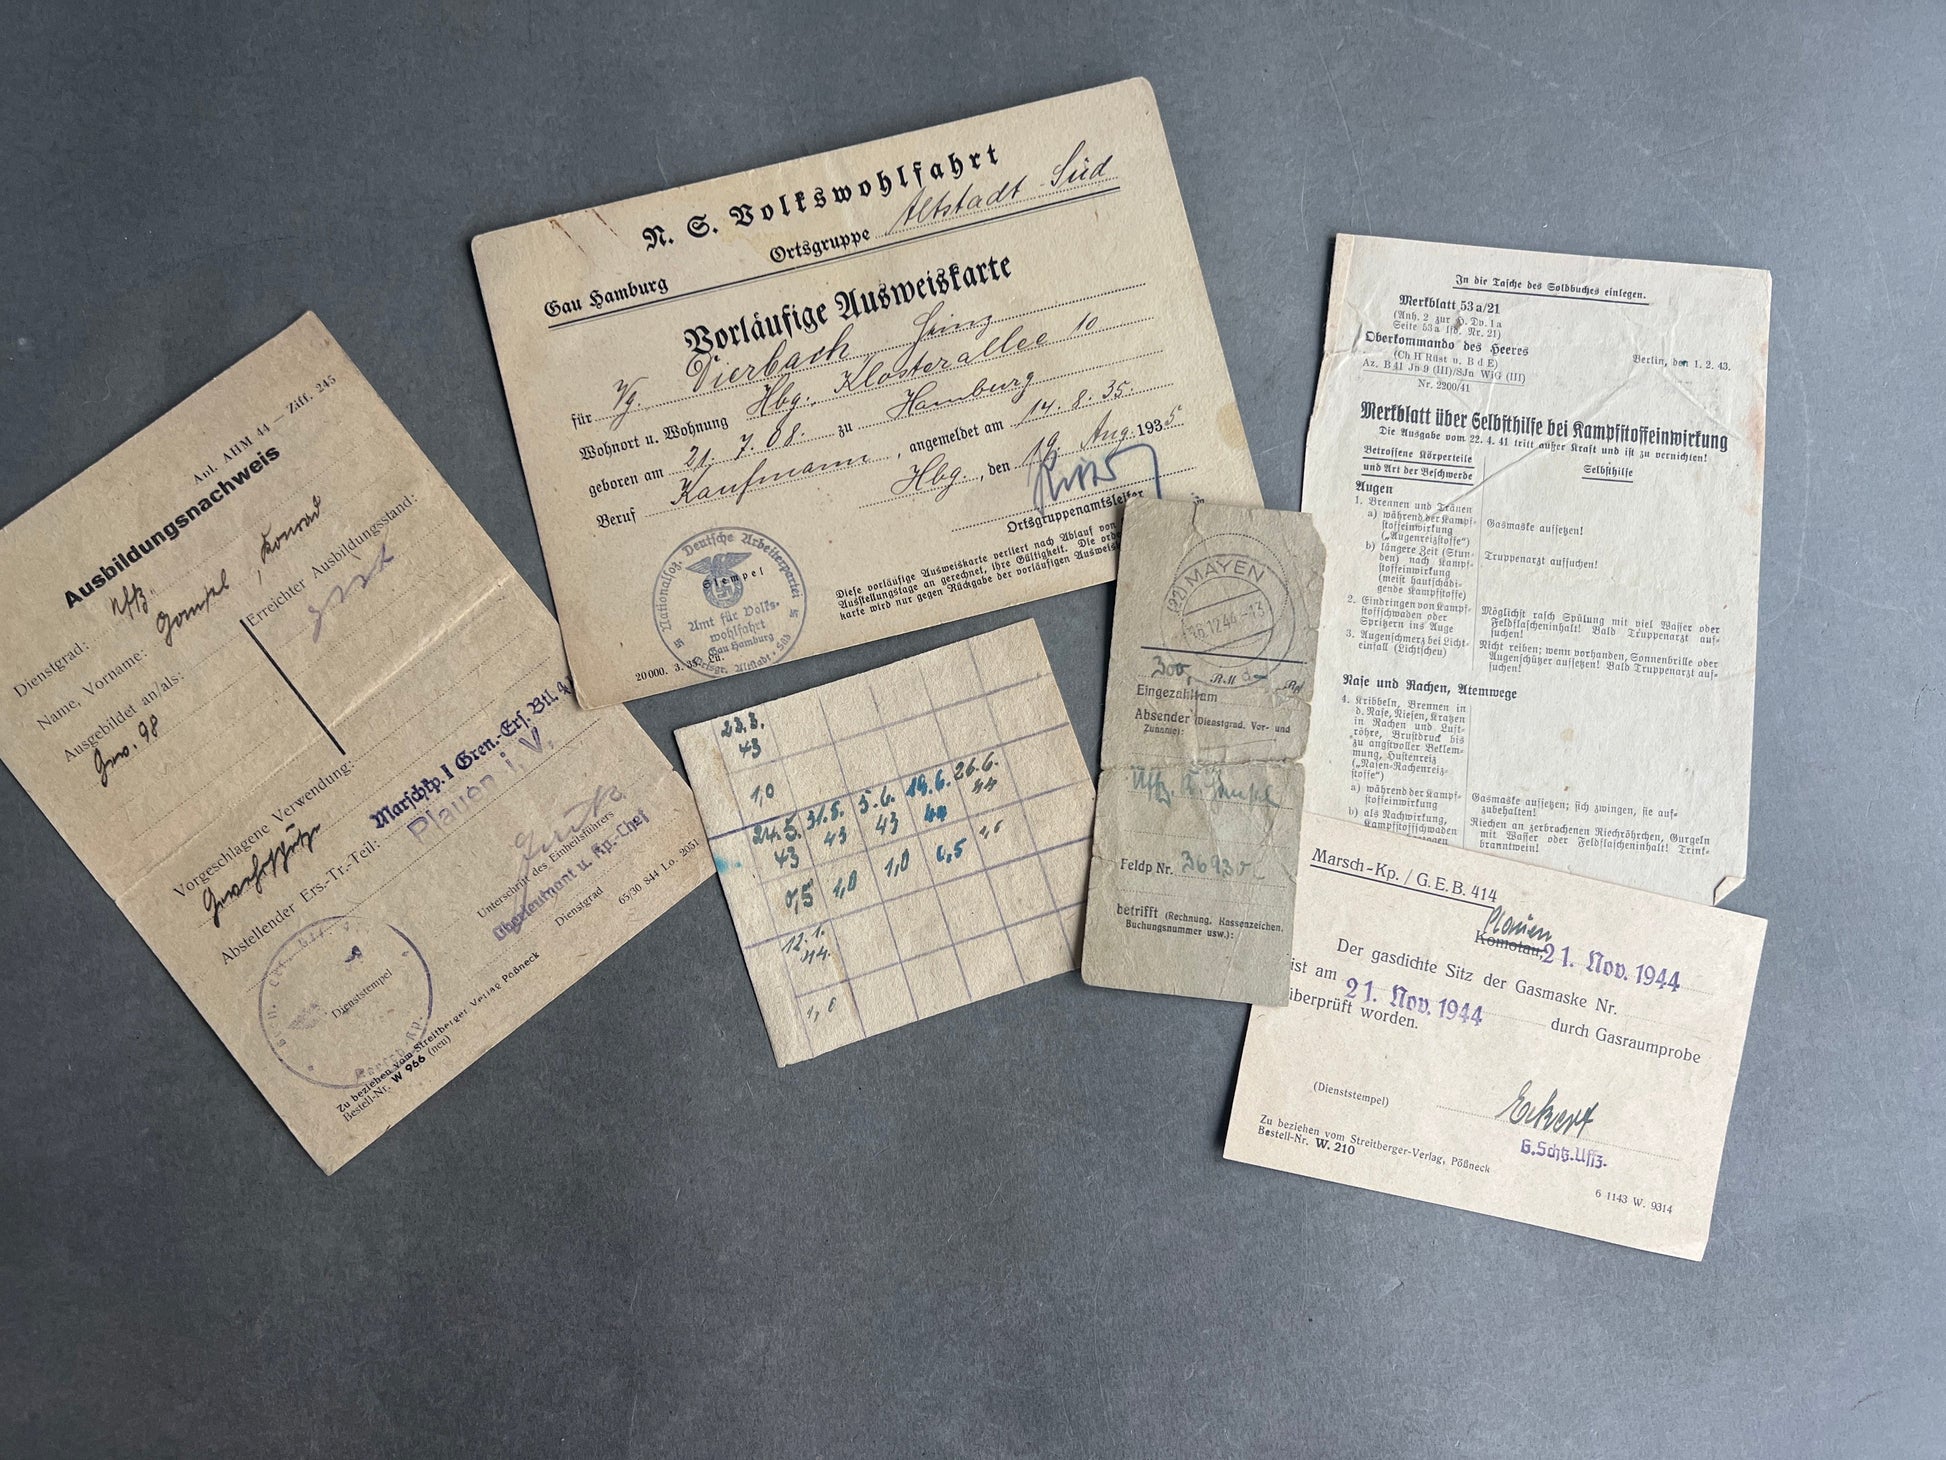 Anl. AHM 44 — Ziff. 245
Ausbildungsnachweis
Dienstgrad: Uffz.
Name, Vorname: Gompel, Konrad
Ausgebildet an/als: Erreichter Ausbildungsstand:
Gew. 98
Vorgeschlagene Verwendung:
Gewehrschütze
Abstellender Ers.-Tr.-Teil: Marschkp. I Gren.-Ers. Btl. 41
Plauen i. V.
Unterschrift des Einheitsführers
Oberleutnant u. Kp.-Chef
Dienstgrad
Dienststempel
65/30 844 Lo. 2051
Zu beziehen vom Streitberger Verlag Pößneck
Bestell-Nr. W 966 (neu)
N. S. Volkswohlfahrt
Gau Hamburg Ortsgruppe Altstadt Süd
Vorläufige Ausweiskarte
für Vg. Dierbach Heinz
Wohnort u. Wohnung Hbg. Klosterallee 10
geboren am 21. 7. 08. zu Hamburg
Beruf Kaufmann, angemeldet am 14. 8. 35.
Hbg., den 19. Aug. 1935
Ortsgruppenamtsleiter
Stempel
Nationalsoz. Deutsche Arbeiterpartei
Amt für Volks-
wohlfahrt
Gau Hamburg
Ortsgr. Altstadt-Süd
Diese vorläufige Ausweiskarte verliert nach Ablauf von
Ausstellungstage an gerechnet, ihre Gültigkeit. Die ord
karte wird nur gegen Rückgabe der vorläufigen Ausweisk
20000. 3. 35. Lü.
23.3.
43
1,0
24.5. 31.5. 5.6. 19.6. 26.6.
43 43 43 44 44
0,5 1,0 1,0 0,5
12.1.
44.
1,0
(22) MAYEN
16.12.44.-13
300,- RM Rpf
Eingezahlt am
Absender (Dienstgrad. Vor- und
Zuname):
Uffz. K. Gompel
Feldp Nr. 26930
betrifft (Rechnung. Kassenzeichen.
Buchungsnummer usw.):
In die Tasche des Soldbuches einlegen.
Merkblatt 53 a/21
(Anh. 2 zur H. Dv. 1a
Seite 53a lfd. Nr. 21)
Oberkommando des Heeres
(Ch H Rüst u. B d E)
Az. B 41 Jn 9 (III)/SJn WiG (III)
Nr. 2200/41
Berlin, den 1. 2. 43.
Merkblatt über Selbsthilfe bei Kampfstoffeinwirkung
Die Ausgabe vom 22. 4. 41 tritt außer Kraft und ist zu vernichten!
Betroffene Körperteile
und Art der Beschwerde
Selbsthilfe
Augen
1. Brennen und Tränen
a) während der Kampf-
stoffeinwirkung
(„Augenreizstoffe“)
Gasmaske aufsetzen!
b) längere Zeit (Stun-
den) nach Kampf-
stoffeinwirkung
(meist hautschädi-
gende Kampfstoffe)
Truppenarzt aufsuchen!
2. Eindringen von Kampf-
stoffschwaden oder
Spritzern ins Auge
Möglichst rasch Spülung mit viel Wasser oder
Feldflascheninhalt! Bald Truppenarzt auf-
suchen!
3. Augenschmerz bei Licht-
einfall (Lichtscheu)
Nicht reiben; wenn vorhanden, Sonnenbrille oder
Augenschützer aufsetzen! Bald Truppenarzt auf-
suchen!
Nase und Rachen, Atemwege
4. Kribbeln, Brennen in
d. Nase, Niesen, Kratzen
in Rachen und Luft-
röhre, Brustdruck bis
zu angstvoller Beklem-
mung, Hustenreiz
(„Nasen-Rachenreiz-
stoffe“)
a) während der Kampf-
stoffeinwirkung
Gasmaske aufsetzen; sich zwingen, sie auf-
zubehalten!
b) als Nachwirkung,
Kampfstoffschwaden
Riechen an zerbrochenen Riechröhrchen, Gurgeln
mit Wasser oder Feldflascheninhalt! Trink-
branntwein!
Marsch-Kp. / G. E. B. 414
Plauen
Komotau, 21. Nov. 1944
Der gasdichte Sitz der Gasmaske Nr.
ist am 21. Nov. 1944 durch Gasraumprobe
überprüft worden.
(Dienststempel)
Eckert
G.Schtz.Uffz.
Zu beziehen vom Streitberger-Verlag, Pößneck
Bestell-Nr. W. 210
6 1143 W. 9314